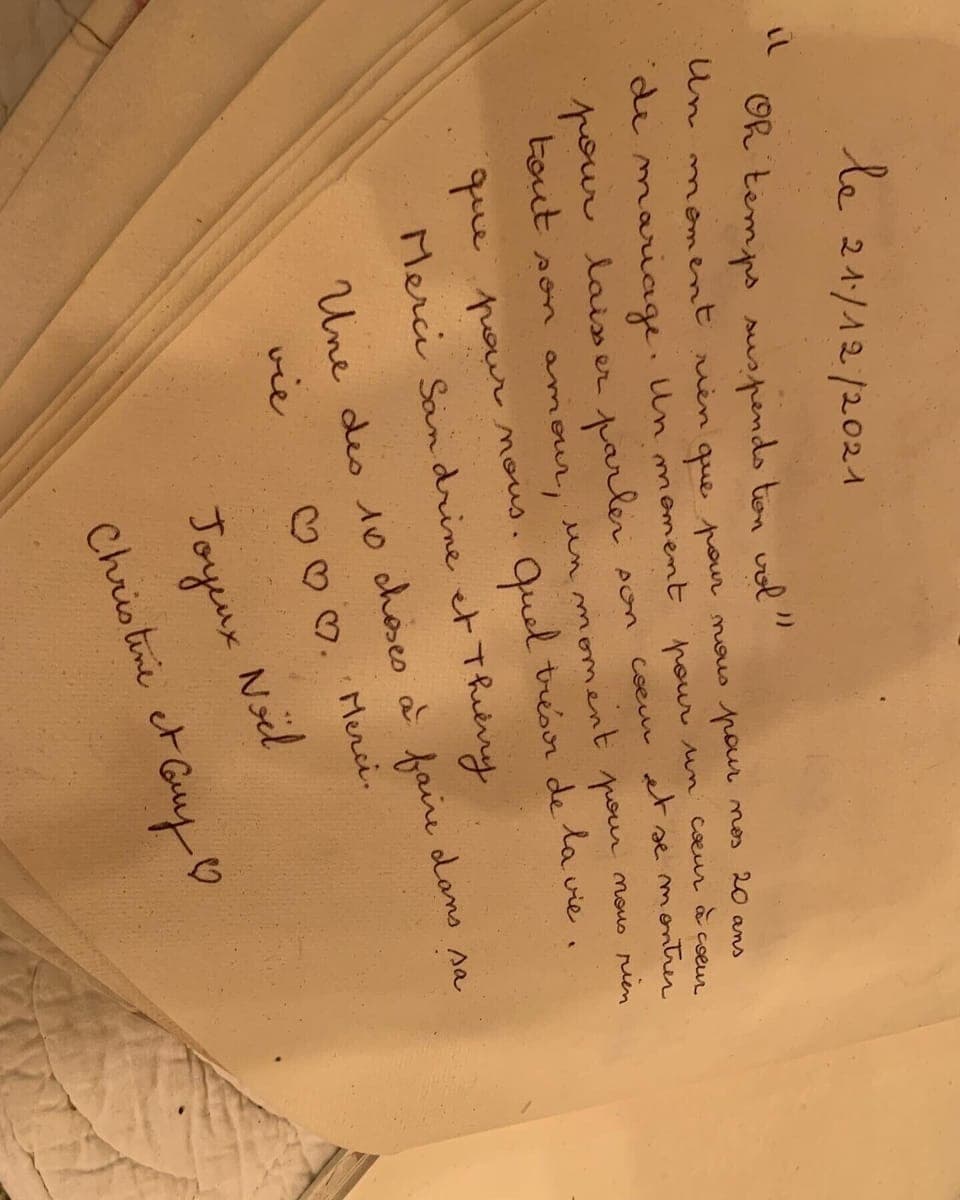 le 21/12/2021
" Oh temps suspends ton vol "
Un moment rien que pour nous pour nos 20 ans
de mariage. Un moment pour un cœur à cœur
pour laisser parler son cœur et se montrer
tout son amour, un moment pour nous rien
que pour nous. Quel trésor de la vie.
Merci Sandrine et Thierry
Une des 10 choses à faire dans sa
vie ♡♡♡. Merci.
Joyeux Noël
Christine et Guy ♡